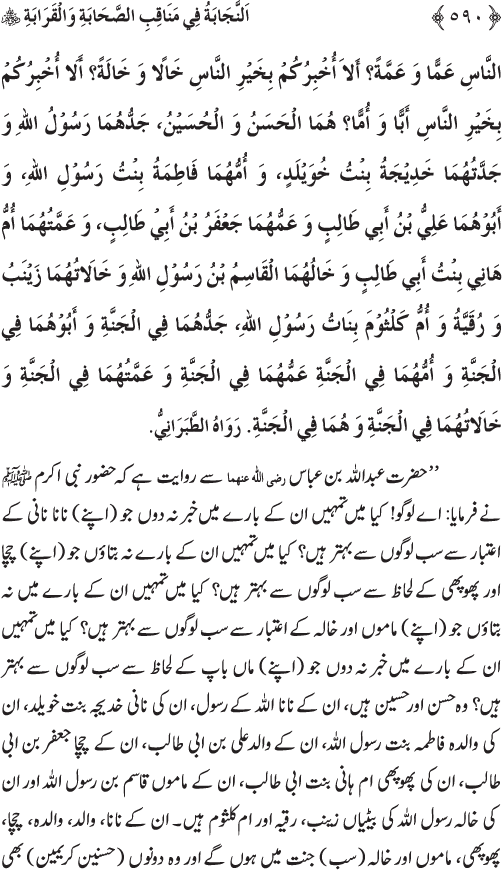 ﴿۵۹۰﴾ اَلنَّجَابَةُ فِي مَنَاقِبِ الصَّحَابَةِ وَالْقَرَابَةِ ﷺ
النَّاسِ عَمًّا وَ عَمَّةً؟ أَلَا أُخْبِرُكُمْ بِخَيْرِ النَّاسِ خَالًا وَ خَالَةً؟ أَلَا أُخْبِرُكُمْ
بِخَيْرِ النَّاسِ أَبًا وَ أُمًّا؟ هُمَا الْحَسَنُ وَ الْحُسَيْنُ، جَدُّهُمَا رَسُوْلُ اللهِ وَ
جَدَّتُهُمَا خَدِيْجَةُ بِنْتُ خُوَيْلَدٍ، وَ أُمُّهُمَا فَاطِمَةُ بِنْتُ رَسُوْلِ اللهِ، وَ
أَبُوْهُمَا عَلِيُّ بْنُ أَبِي طَالِبٍ وَ عَمُّهُمَا جَعْفَرُ بْنُ أَبِيْ طَالِبٍ، وَ عَمَّتُهُمَا أُمُّ
هَانِي بِنْتُ أَبِي طَالِبٍ وَ خَالُهُمَا الْقَاسِمُ بْنُ رَسُوْلِ اللهِ وَ خَالَاتُهُمَا زَيْنَبُ
وَ رُقَيَّةُ وَ أُمُّ كَلْثُوْمَ بِنَاتُ رَسُوْلِ اللهِ، جَدُّهُمَا فِي الْجَنَّةِ وَ أَبُوْهُمَا فِي
الْجَنَّةِ وَ أُمُّهُمَا فِي الْجَنَّةِ عَمُّهُمَا فِي الْجَنَّةِ وَ عَمَّتُهُمَا فِي الْجَنَّةِ وَ
خَالَاتُهُمَا فِي الْجَنَّةِ وَ هُمَا فِي الْجَنَّةِ. رَوَاهُ الطَّبَرَانِيُّ.
”حضرت عبداللہ بن عباس رضی اللہ عنھما سے روایت ہے کہ حضور نبی اکرم ﷺ
نے فرمایا: اے لوگو! کیا میں تمہیں ان کے بارے میں خبر نہ دوں جو (اپنے) نانا نانی کے
اعتبار سے سب لوگوں سے بہتر ہیں؟ کیا میں تمہیں ان کے بارے نہ بتاؤں جو (اپنے) چچا
اور پھوپھی کے لحاظ سے سب لوگوں سے بہتر ہیں؟ کیا میں تمہیں ان کے بارے میں نہ
بتاؤں جو (اپنے) ماموں اور خالہ کے اعتبار سے سب لوگوں سے بہتر ہیں؟ کیا میں تمہیں
ان کے بارے میں خبر نہ دوں جو (اپنے) ماں باپ کے لحاظ سے سب لوگوں سے بہتر
ہیں؟ وہ حسن اور حسین ہیں، ان کے نانا اللہ کے رسول، ان کی نانی خدیجہ بنت خویلد، ان
کی والدہ فاطمہ بنت رسول اللہ، ان کے والد علی بن ابی طالب، ان کے چچا جعفر بن ابی
طالب، ان کی پھوپھی ام ہانی بنت ابی طالب، ان کے ماموں قاسم بن رسول اللہ اور ان
کی خالہ رسول اللہ کی بیٹیاں زینب، رقیہ اور ام کلثوم ہیں۔ ان کے نانا، والد، والدہ، چچا،
پھوپھی، ماموں اور خالہ (سب) جنت میں ہوں گے اور وہ دونوں (حسنین کریمین) بھی